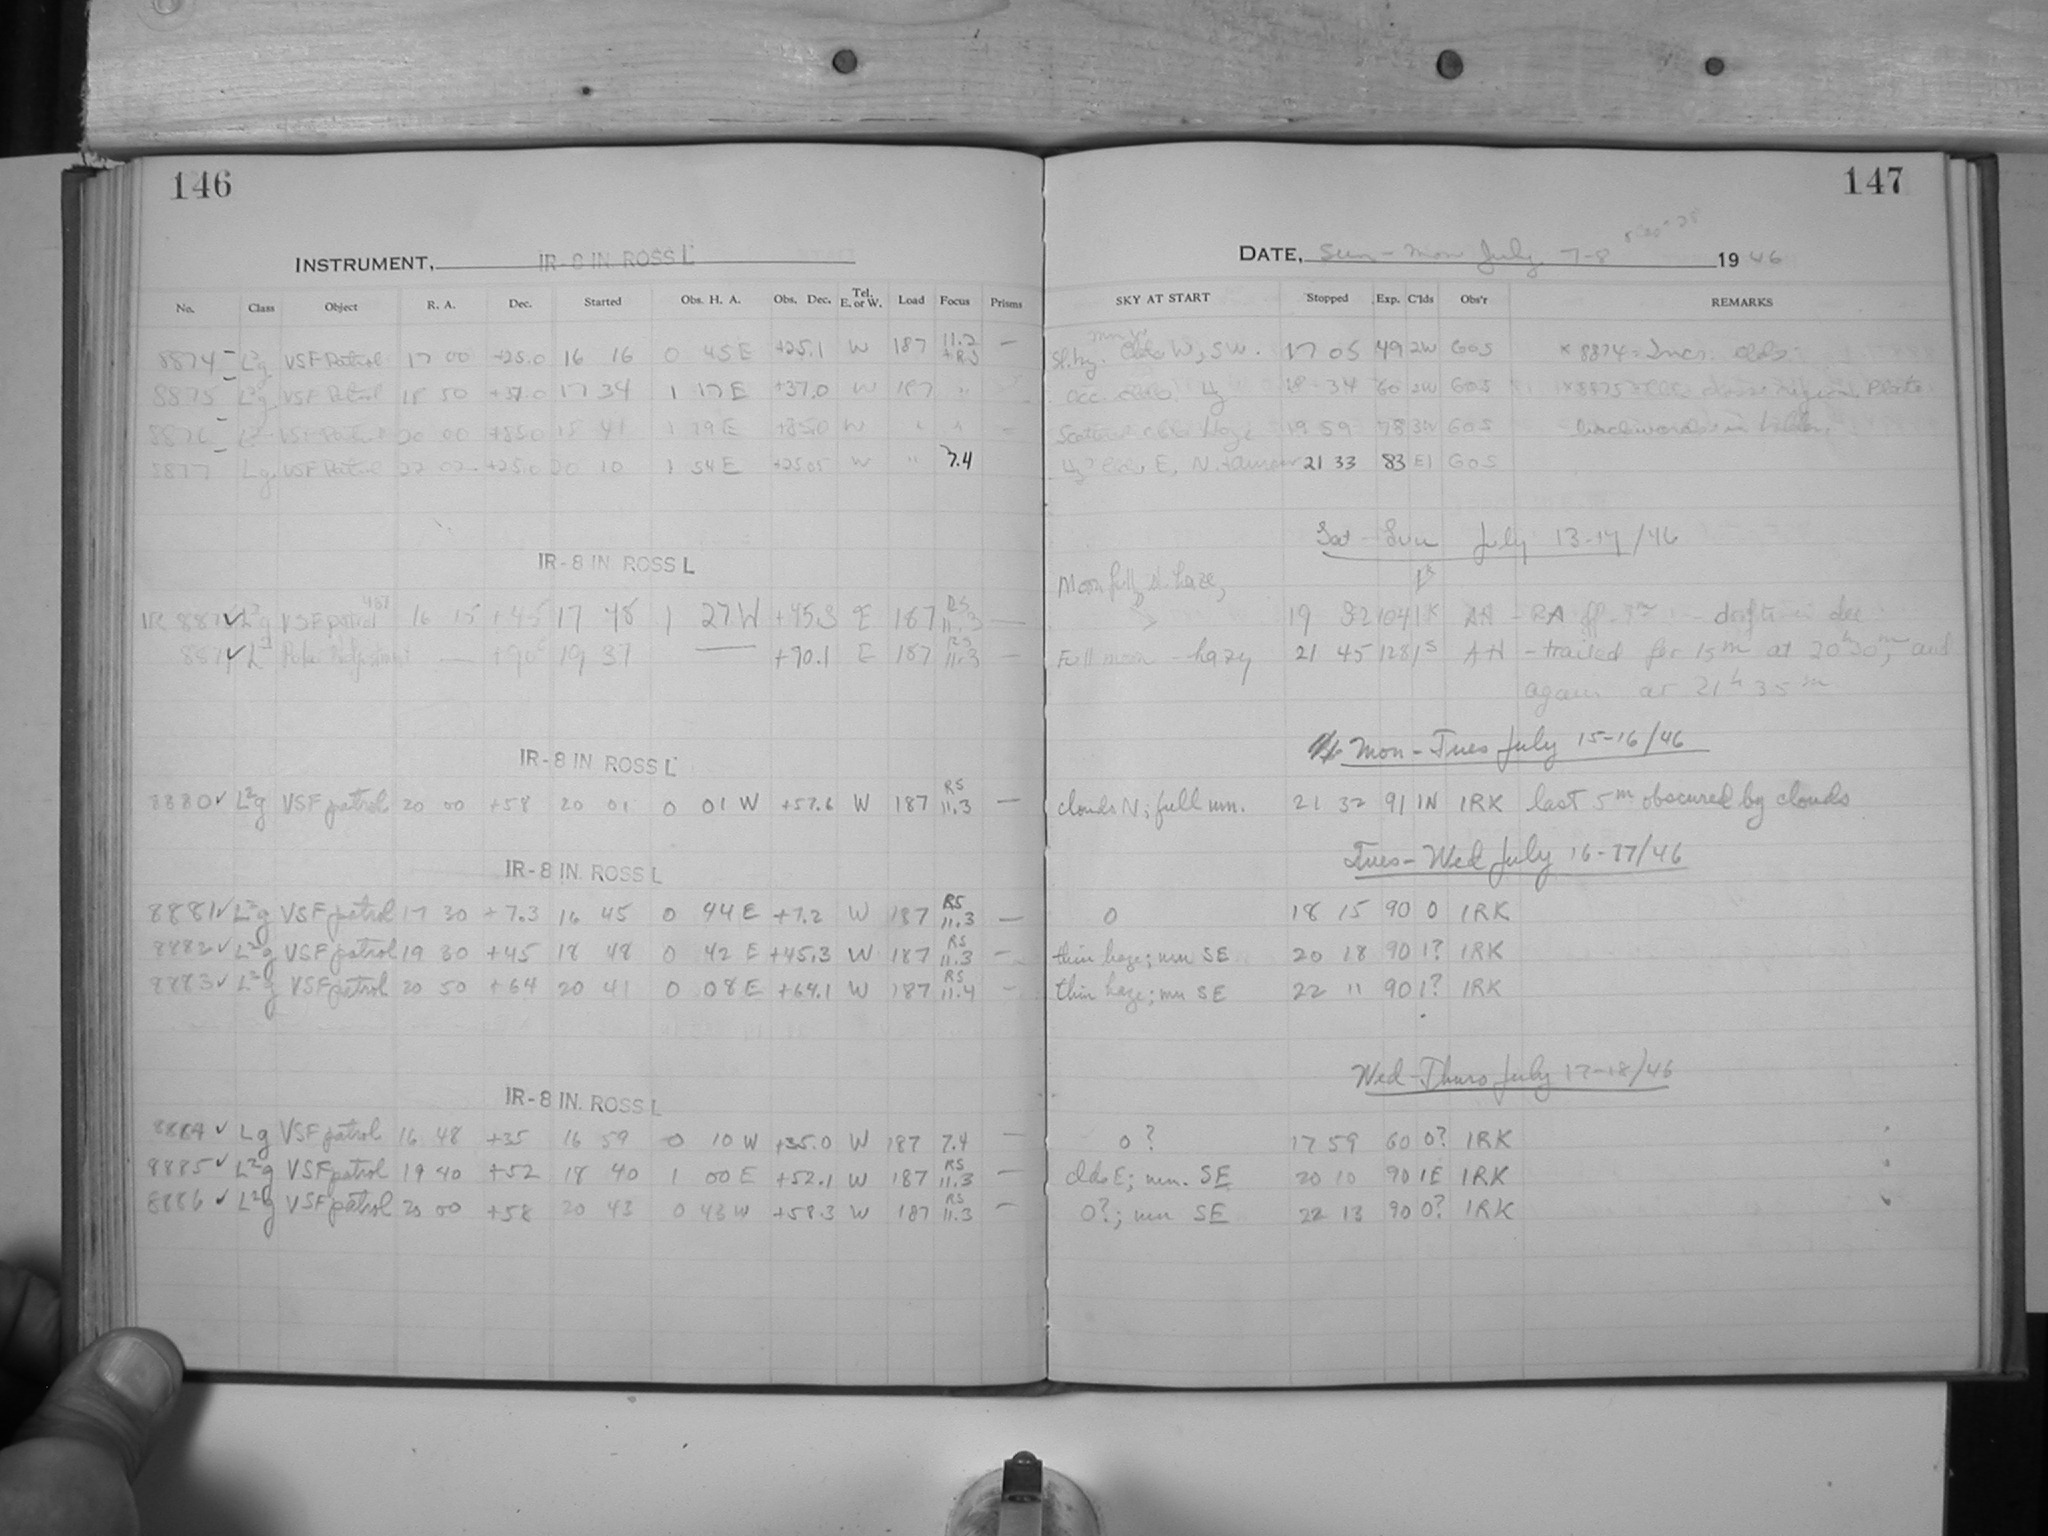 146
INSTRUMENT, IR-8 IN ROSS L
No. Class Object R. A. Dec. Started Obs. H. A. Obs. Dec. Tel. E. or W. Load Focus Prisms
8874 L²g VSF Patrol 17 00 +25.0 16 16 0 45 E +25.1 W 187 11.2 RS —
8875 L²g VSF Patrol 18 50 +37.0 17 34 1 17 E +37.0 W 187 "
8876 VSF Patrol 20 00 +85.0 18 41 1 19 E +85.0 W " "
8877 Lg VSF Patrol 22 02 +25.0 20 10 1 54 E +25.05 W " 7.4
IR-8 IN ROSS L
IR L²g VSF patrol 16 15 +45 17 48 1 27 W +45.3 E 187 RS 11.3 —
L² Pole Adjustment — +90° 19 37 — +90.1 E 187 RS 11.3 —
IR-8 IN ROSS L
8880 ✓ L²g VSF patrol 20 00 +58 20 01 0 01 W +57.6 W 187 RS 11.3 —
IR-8 IN. ROSS L
8881 ✓ L²g VSF patrol 17 30 +7.3 16 45 0 44 E +7.2 W 187 RS 11.3 —
8882 ✓ L²g VSF patrol 19 30 +45 18 48 0 42 E +45.3 W 187 RS 11.3 —
8883 ✓ L²g VSF patrol 20 50 +64 20 41 0 08 E +64.1 W 187 RS 11.4 —
IR-8 IN. ROSS L
8884 ✓ Lg VSF patrol 16 48 +35 16 59 0 10 W +35.0 W 187 7.4 —
8885 ✓ L²g VSF patrol 19 40 +52 18 40 1 00 E +52.1 W 187 RS 11.3 —
8886 ✓ L²g VSF patrol 20 00 +58 20 43 0 43 W +58.3 W 187 RS 11.3 —
147
DATE, Sun - Mon July 7-8 1946
SKY AT START Stopped Exp. C'lds Obs'r REMARKS
W, SW. 17 05 49 2W GOS × 8874 = Incr. clds.
18 34 60 2W GOS
haze 19 59 78 GOS
E, N. 21 33 83 E1 GOS
Sat - Sun July 13-14/46
Moon full, sl. haze, 19 32 104 AH - RA off - drifts in dec
Full moon - hazy 21 45 128 1S AH - trailed for 15ᵐ at 20ʰ30ᵐ, and
again at 21ʰ35ᵐ
Mon - Tues July 15-16/46
clouds N; full mn. 21 32 91 1N IRK last 5ᵐ obscured by clouds
Tues - Wed July 16-17/46
0 18 15 90 0 IRK
thin haze; mn SE 20 18 90 1? IRK
thin haze; mn SE 22 11 90 1? IRK
Wed - Thurs July 17-18/46
0? 17 59 60 0? IRK
clds E; mn. SE 20 10 90 1E IRK
0?; mn SE 22 13 90 0? IRK